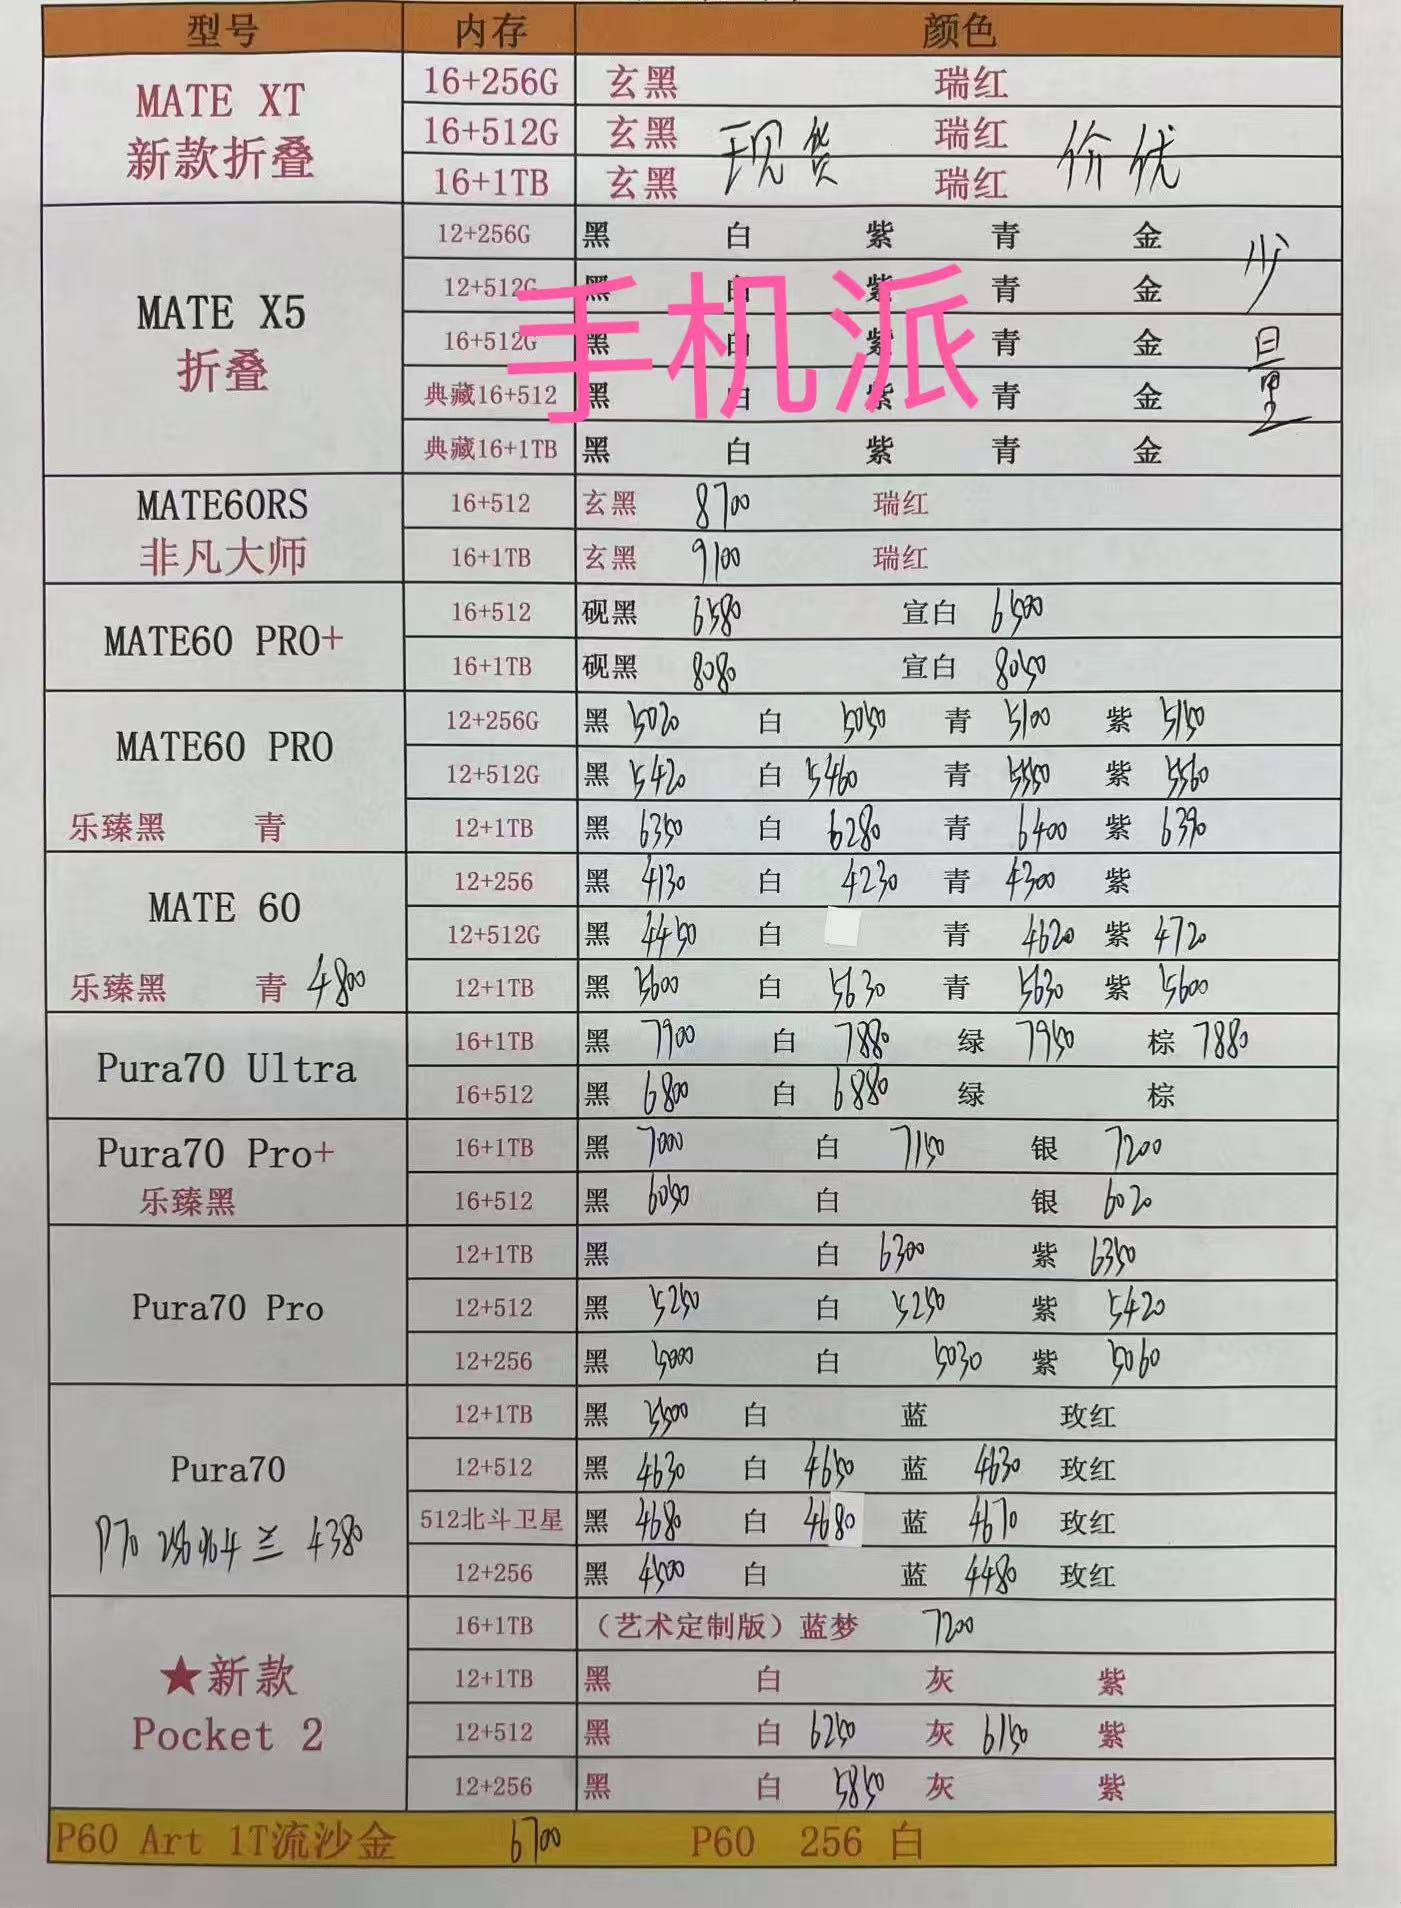 型号 内存 颜色
MATE XT 新款折叠
16+256G 玄黑 瑞红
16+512G 玄黑 现货 瑞红 价优
16+1TB 玄黑 瑞红
MATE X5 折叠
12+256G 黑 白 紫 青 金 少量
12+512G 黑 白 紫 青 金
手机派
16+512G 黑 白 紫 青 金
典藏16+512 黑 白 紫 青 金
典藏16+1TB 黑 白 紫 青 金
MATE60RS 非凡大师
16+512 玄黑 8700 瑞红
16+1TB 玄黑 9100 瑞红
MATE60 PRO+
16+512 砚黑 6580 宣白 6500
16+1TB 砚黑 8080 宣白 8050
MATE60 PRO
12+256G 黑 5020 白 5050 青 5100 紫 5150
12+512G 黑 5420 白 5460 青 5550 紫 5560
乐臻黑 青
12+1TB 黑 6350 白 6280 青 6400 紫 6390
MATE 60
12+256 黑 4130 白 4230 青 4300 紫
12+512G 黑 4450 白 青 4620 紫 4720
乐臻黑 青 4800
12+1TB 黑 5600 白 5630 青 5630 紫 5600
Pura70 Ultra
16+1TB 黑 7900 白 7880 绿 7950 棕 7880
16+512 黑 6800 白 6880 绿 棕
Pura70 Pro+
乐臻黑
16+1TB 黑 7000 白 7150 银 7200
16+512 黑 6050 白 银 6020
Pura70 Pro
12+1TB 黑 白 6300 紫 6350
12+512 黑 5250 白 5250 紫 5420
12+256 黑 5000 白 5030 紫 5060
Pura70
12+1TB 黑 5500 白 蓝 玫红
12+512 黑 4630 白 4650 蓝 4630 玫红
512北斗卫星 黑 4680 白 4680 蓝 4670 玫红
P70 256 兰 4380
12+256 黑 4500 白 蓝 4480 玫红
★新款 Pocket 2
16+1TB （艺术定制版）蓝梦 7200
12+1TB 黑 白 灰 紫
12+512 黑 白 6250 灰 6150 紫
12+256 黑 白 5850 灰 紫
P60 Art 1T流沙金 6700 P60 256 白